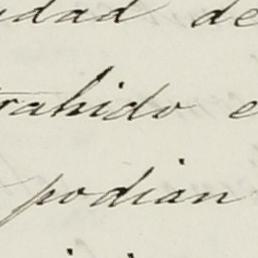 udad de
trahido e
podian